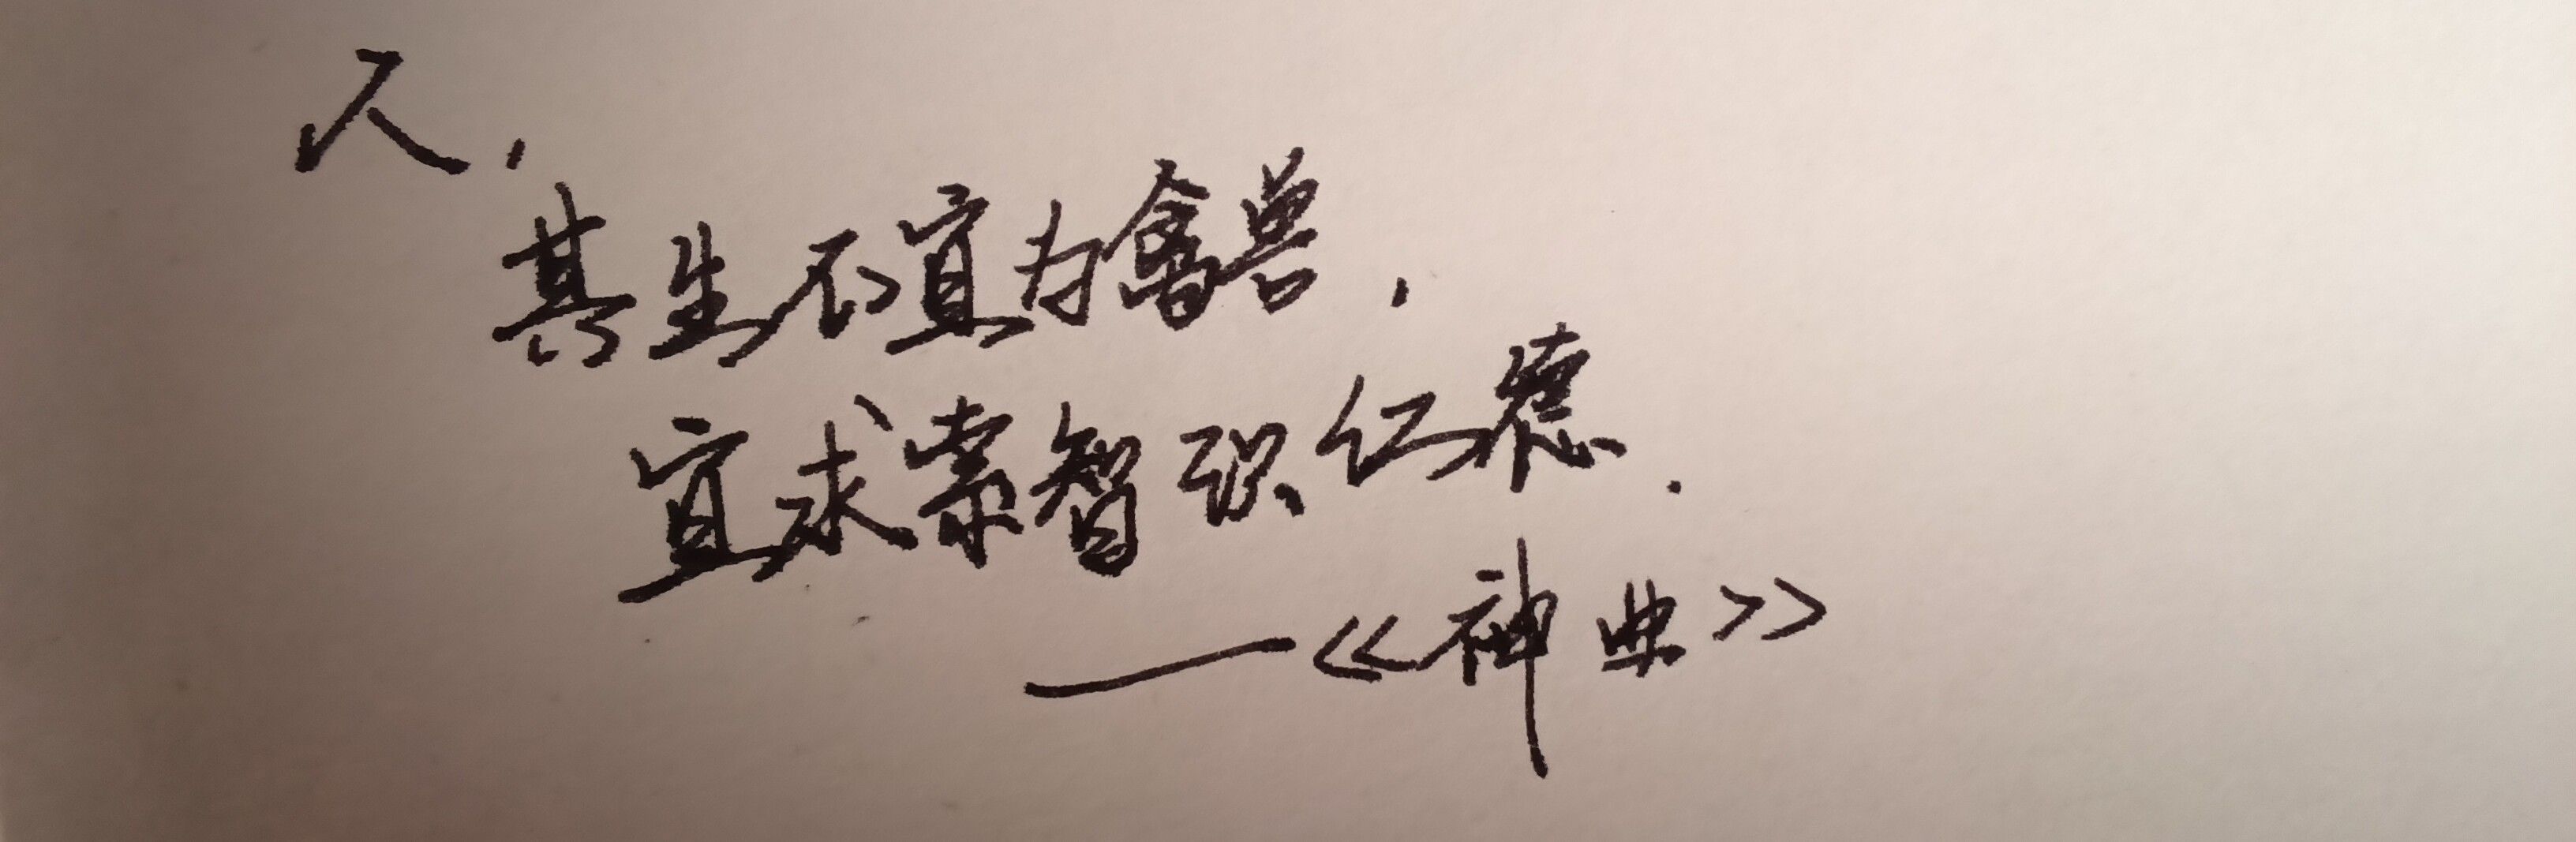 人,
其生不宜为禽兽,
宜求索智识仁德.
——《神曲》